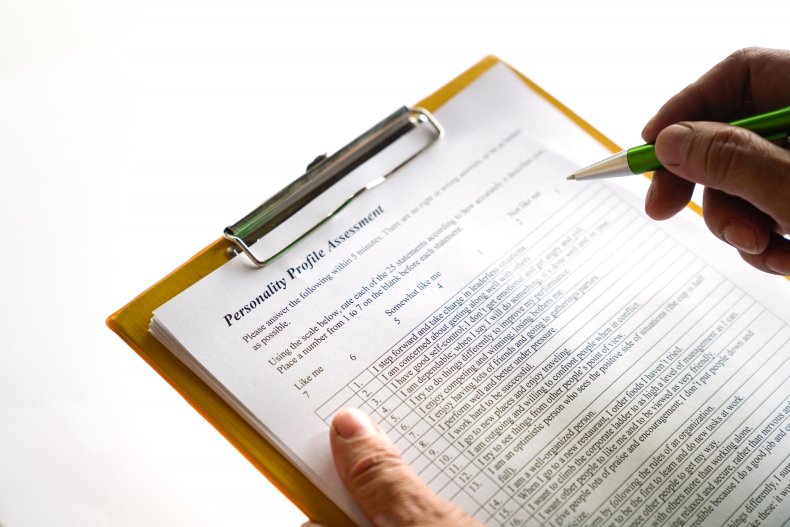 Personality Profile Assessment
Please answer the following within 5 minutes. There are no right or wrong answers, so be as honest
as possible.
Using the scale below, rate each of the 25 statements according to how accurately it describes you.
Place a number from 1 to 7 on the blank before each statement.
Like me Somewhat like me Not like me
7 6 5 4 3 2 1
1. I step forward and take charge in leaderless situations.
2. I am concerned about getting along well with others.
3. I have good self-control; I don't get emotional and get angry and yell.
4. I am dependable; when I say I will do something, it's done well and on time.
5. I try to do things differently to improve my performance.
6. I enjoy competing and winning; losing bothers me.
7. I enjoy having lots of friends and going to gatherings/parties.
8. I perform well and better under pressure
9. I work hard to be successful.
10. I go to new places and enjoy traveling.
11. I am outgoing and willing to confront people when in conflict.
12. I try to see things from other people's point of view.
13. I am an optimistic person who sees the positive side of situations (the cup is half
full).
14. I am a well-organized person.
15. When I go to a new restaurant I order foods I haven't tried.
16. I want to climb the corporate ladder to as high a level of management as I can.
want other people to like me and to be viewed as very friendly.
give people lots of praise and encouragement; I don't put people down and
by following the rules of an organization.
be the first to learn and do new tasks at work.
other people to get my way.
h others more than working alone.
relaxed and secure, rather than nervous and
edible because I do a good job and